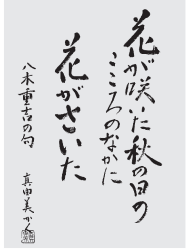 花が咲いた秋の日の
こころのなかに
花がさいた
八木重吉の句
真由美かく